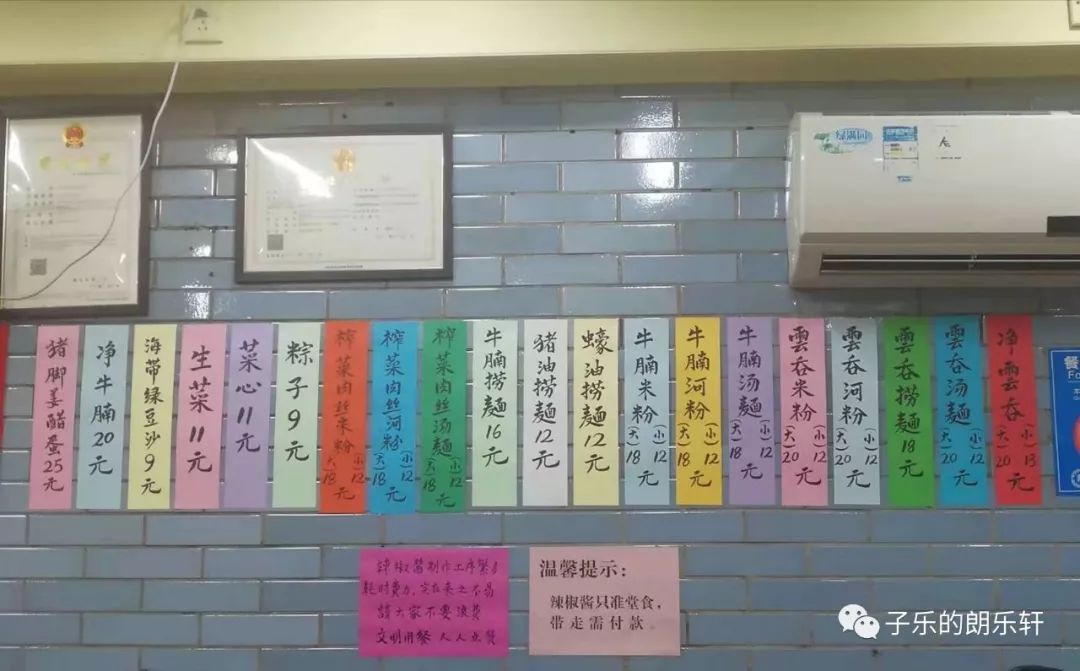 绿满园
猪脚姜醋蛋25元
净牛腩20元
海带绿豆沙9元
生菜11元
菜心11元
粽子9元
榨菜肉丝米粉(大)18(小)12元
榨菜肉丝河粉(大)18(小)12元
榨菜肉丝汤麵(大)18(小)12元
牛腩捞麵16元
猪油捞麵12元
蠔油捞麵12元
牛腩米粉(大)18(小)12元
牛腩河粉(大)18(小)12元
牛腩汤麵(大)18(小)12元
雲吞米粉(大)20(小)12元
雲吞河粉(大)20(小)12元
雲吞捞麵18元
雲吞汤麵(大)20(小)12元
净雲吞(大)20(小)13元
餐
Fo
辣椒醬制作工序繁多
耗时費力,实在来之不易
請大家不要浪费
文明用餐 人人点赞
温馨提示:
辣椒酱只准堂食,
带走需付款。
子乐的朗乐轩